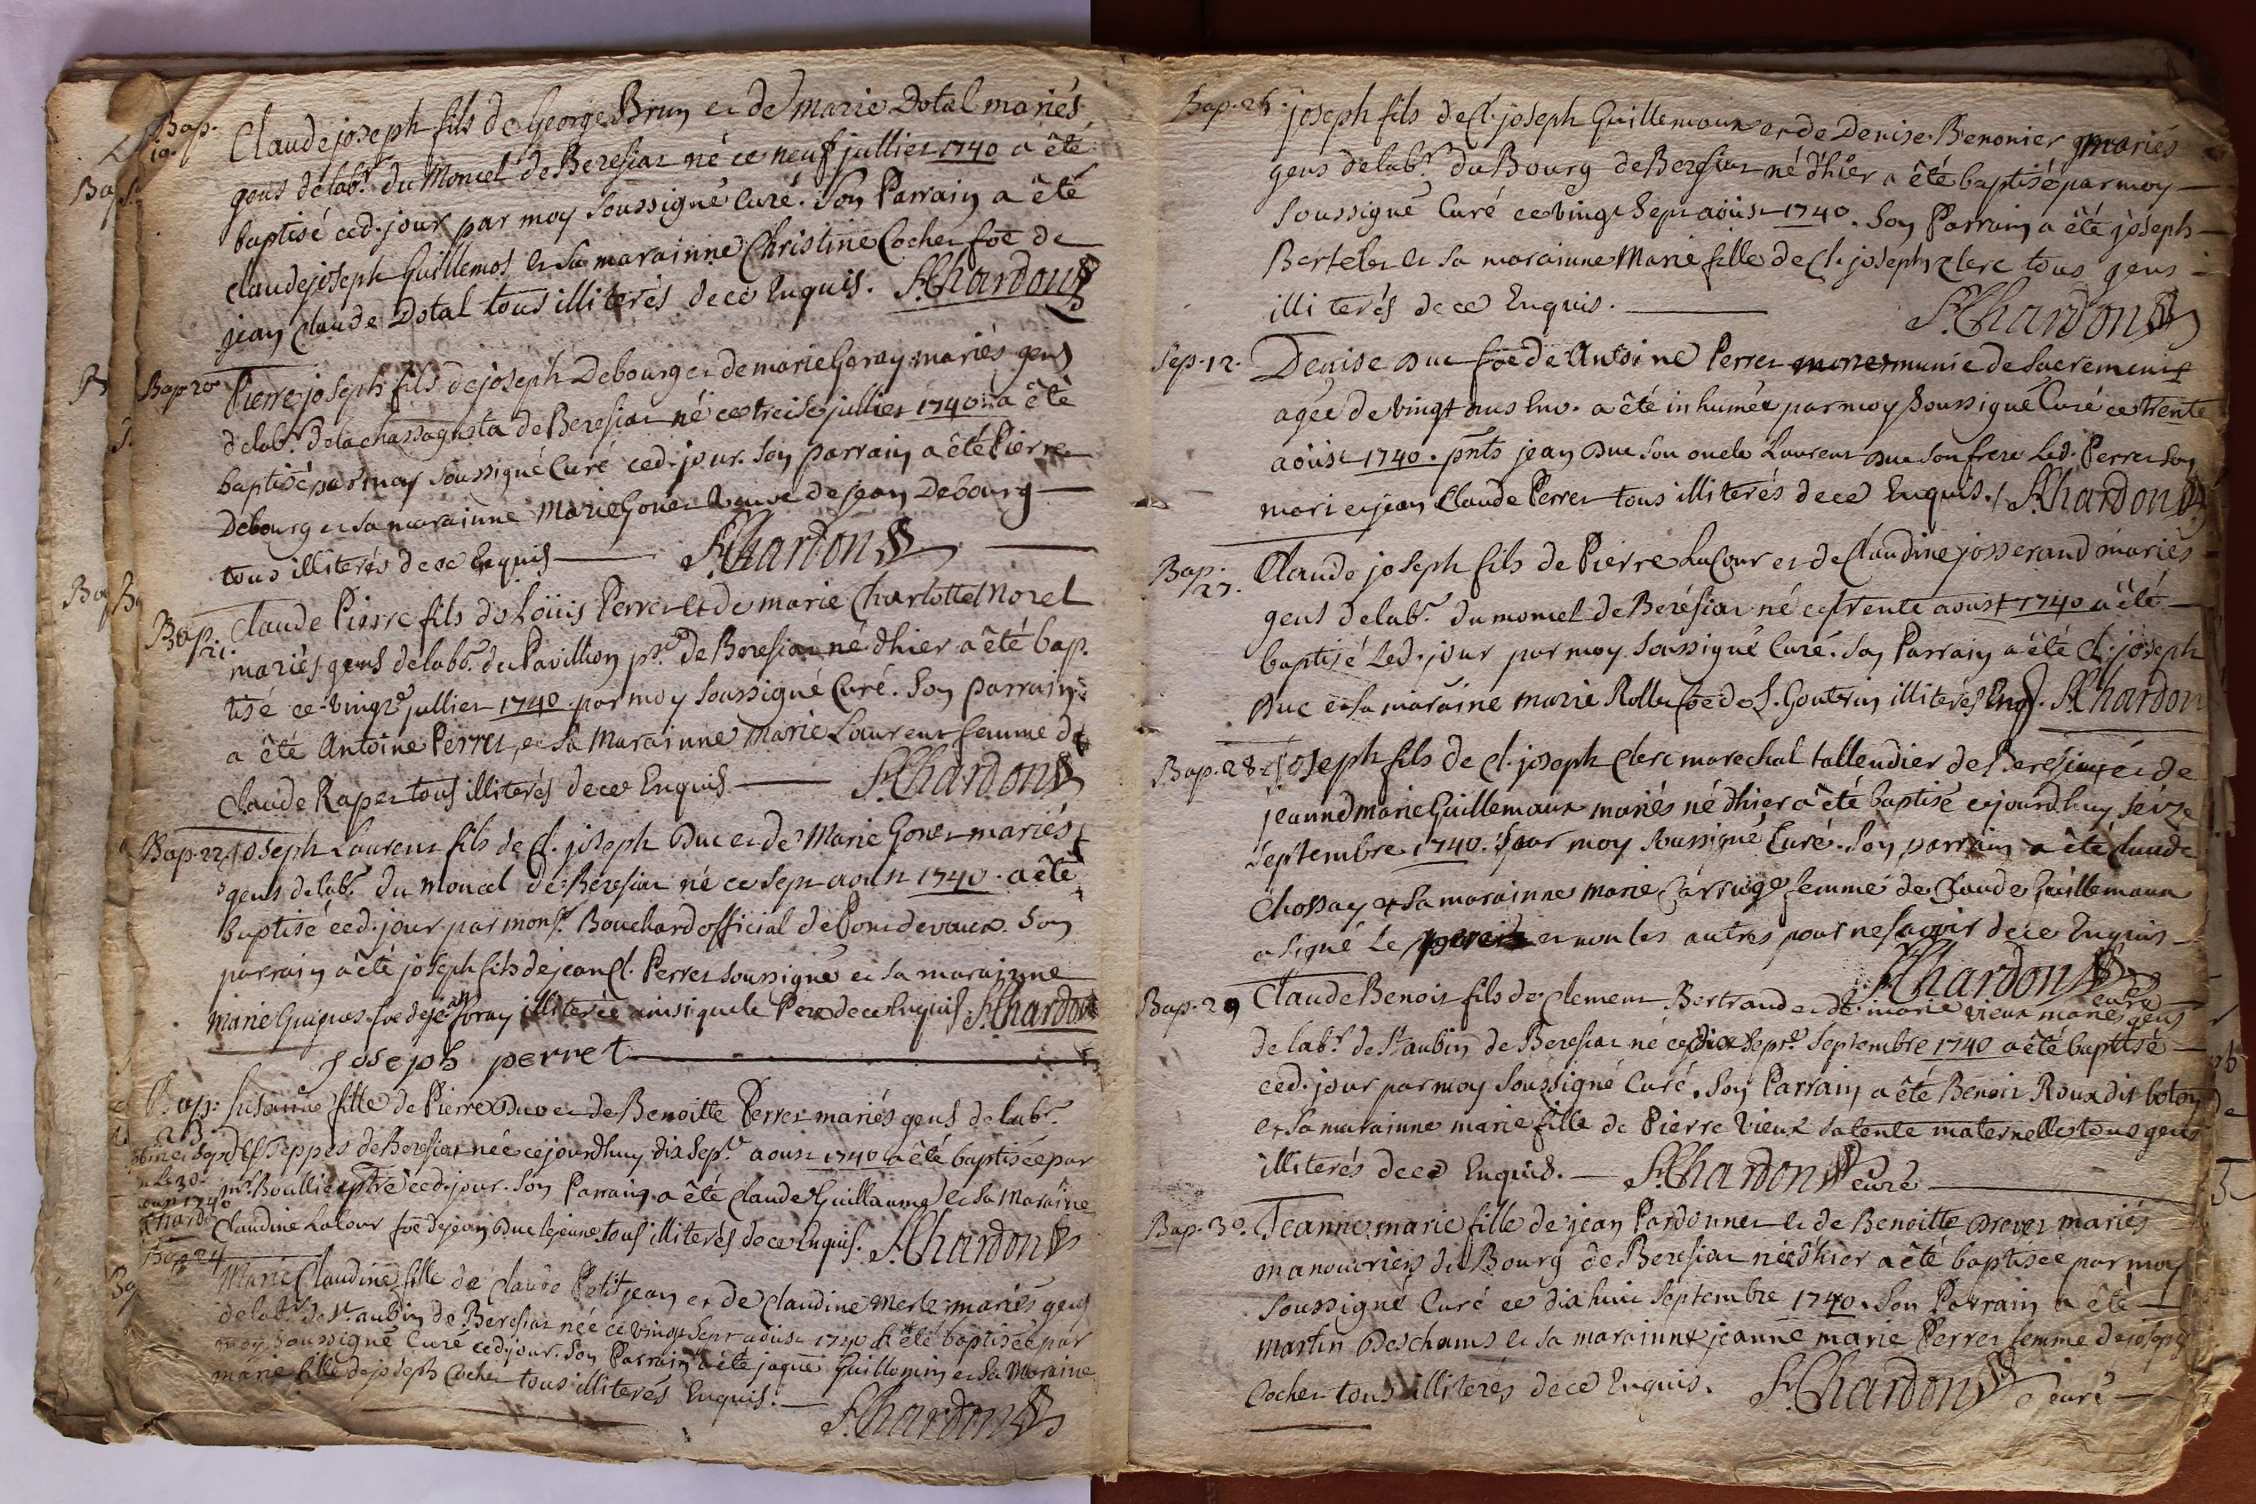 Bap. 19. Claude joseph fils de George Brun et de marie Dotal mariés
gens de labr. du Moncel de Beresiat né ce neuf jullier 1740 a été
baptisé ced. jour par moy soussigné Curé. Son Parrain a été
claude joseph Guillemot et sa marainne Christine Cochet foe de
jean Claude Dotal tous illiterés de ce Enquis. Chardon
Bap 20 Pierre joseph fils de joseph Debourg et de marie Goray mariés gens
de labr. de la chassagnota de Beresiat né ce treise jullier 1740 a été
baptisé par moy soussigné Curé ced. jour. Son parrain a été Pierre
Debourg et sa marainne Marie Gonet veuve de jean Debourg
tous illiterés de ce Enquis Chardon
Bap. 21. Claude Pierre fils de Loüis Perret et de marie Charlotte Morel
mariés gens de labr. du Pavillion psse de Beresiat né d'hier a été bap.
tisé ce vingte jullier 1740 par moy soussigné Curé. Son parrain
a été Antoine Perret et sa Marainne marie Laurent femme de
Claude Rapet tous illiterés de ce Enquis Chardon
Bap. 22. joseph Laurent fils de Cl. joseph Duc et de Marie Gonet mariés
gens de labr. du moncel de Beresiat né ce sept aoust 1740. a été
baptisé ced. jour par monsr. Bouchard official de Pont de vaux. Son
parrain a été joseph fils de jean Cl. Perret soussigné et sa marainne
marie Guigues foe de Goray illiterée ainsi que le Pere de ce Enquis Chardon
joseph perret
Bap. 23 Susanne fille de Pierre Duc et de Benoitte Perret mariés gens de labr.
des Beppes de Beresiat née cejourdhuy dix Sept. aoust 1740 a été baptisée par
mr. Boullie ptre ced. jour. Son Parrain a été Claude Guillaume et sa Maraine
Claudine Lacour foe de jean Duc le jeune tous illiterés de ce Enquis. Chardon
aoust 1740
Bap 24 Marie Claudine fille de Claude Petitjean et de Claudine Merle mariés gens
de labr. de St. aubin de Beresiat née ce vingt Sept aoust 1740 a été baptisée par
moy soussigné Curé ced. jour. Son Parrain a été jaque Guillomin et sa Maraine
marie fille de joseph Cochet tous illiterés Enquis. Chardon
Bap. 25. joseph fils de Cl. joseph Guillemaux et de Denise Benonier mariés
gens de labr. du Bourg de Beresiat né d'hier a été baptisé par moy
soussigné Curé ce vingt Sept aoüst 1740. Son Parrain a été joseph
Bertelet et sa marainne Marie fille de Cl. joseph Clerc tous gens
illiterés de ce Enquis. Chardon
Sep. 12. Denise Duc foe de Antoine Perret munie de Sacremens
agée de vingt ans Env. a été inhumée par moy Soussigné Curé ce trente
aoüst 1740. pnts jean Duc son oncle Laurent Duc son frere Led. Perret son
mari et jean Claude Perret tous illiterés de ce Enquis. Chardon
Bap. 27. Claude joseph fils de Pierre LaCour et de Claudine josserand mariés
gens de labr. du moncel de Beresiat né ce trente aoust 1740 a été
baptisé Led. jour par moy soussigné Curé. Son Parrain a été Cl. joseph
Duc et sa maraine marie Rollet foe de Goutrin illiterés Enqs. Chardon
Bap. 28. joseph fils de Cl. joseph Clerc marechal tallendier de Beresiat et de
jeanne marie Guillemaux mariés né d'hier a été baptisé cejourdhuy seize
septembre 1740. par moy soussigné Curé. Son parrain a été Claude
Chossay et Sa marainne marie Carruge femme de Claude Guillemaux
a signé Le et non les autres pour ne sçavoir de ce Enquis
Chardon curé
Bap. 29 Claude Benoit fils de Clement Bertrand et de marie vieux mariés gens
de labr. de St. aubin de Beresiat né ce dix Sept. Septembre 1740 a été baptisé
ced. jour par moy soussigné Curé. Son Parrain a été Benoit Roux dit boton
et sa marainne marie fille de Pierre Vieux sa tente maternelle tous gens
illiterés de ce Enquis. Chardon curé
Bap. 30. Jeanne marie fille de jean Pardonnet et de Benoitte Drevet mariés
manouvriers du Bourg de Beresiat née d'hier a été baptisée par moy
soussigné Curé ce dix huit Septembre 1740. Son Parrain a été
martin Deschams et sa marainne jeanne marie Perret femme de joseph
Cochet tous illiterés de ce Enquis. Chardon curé